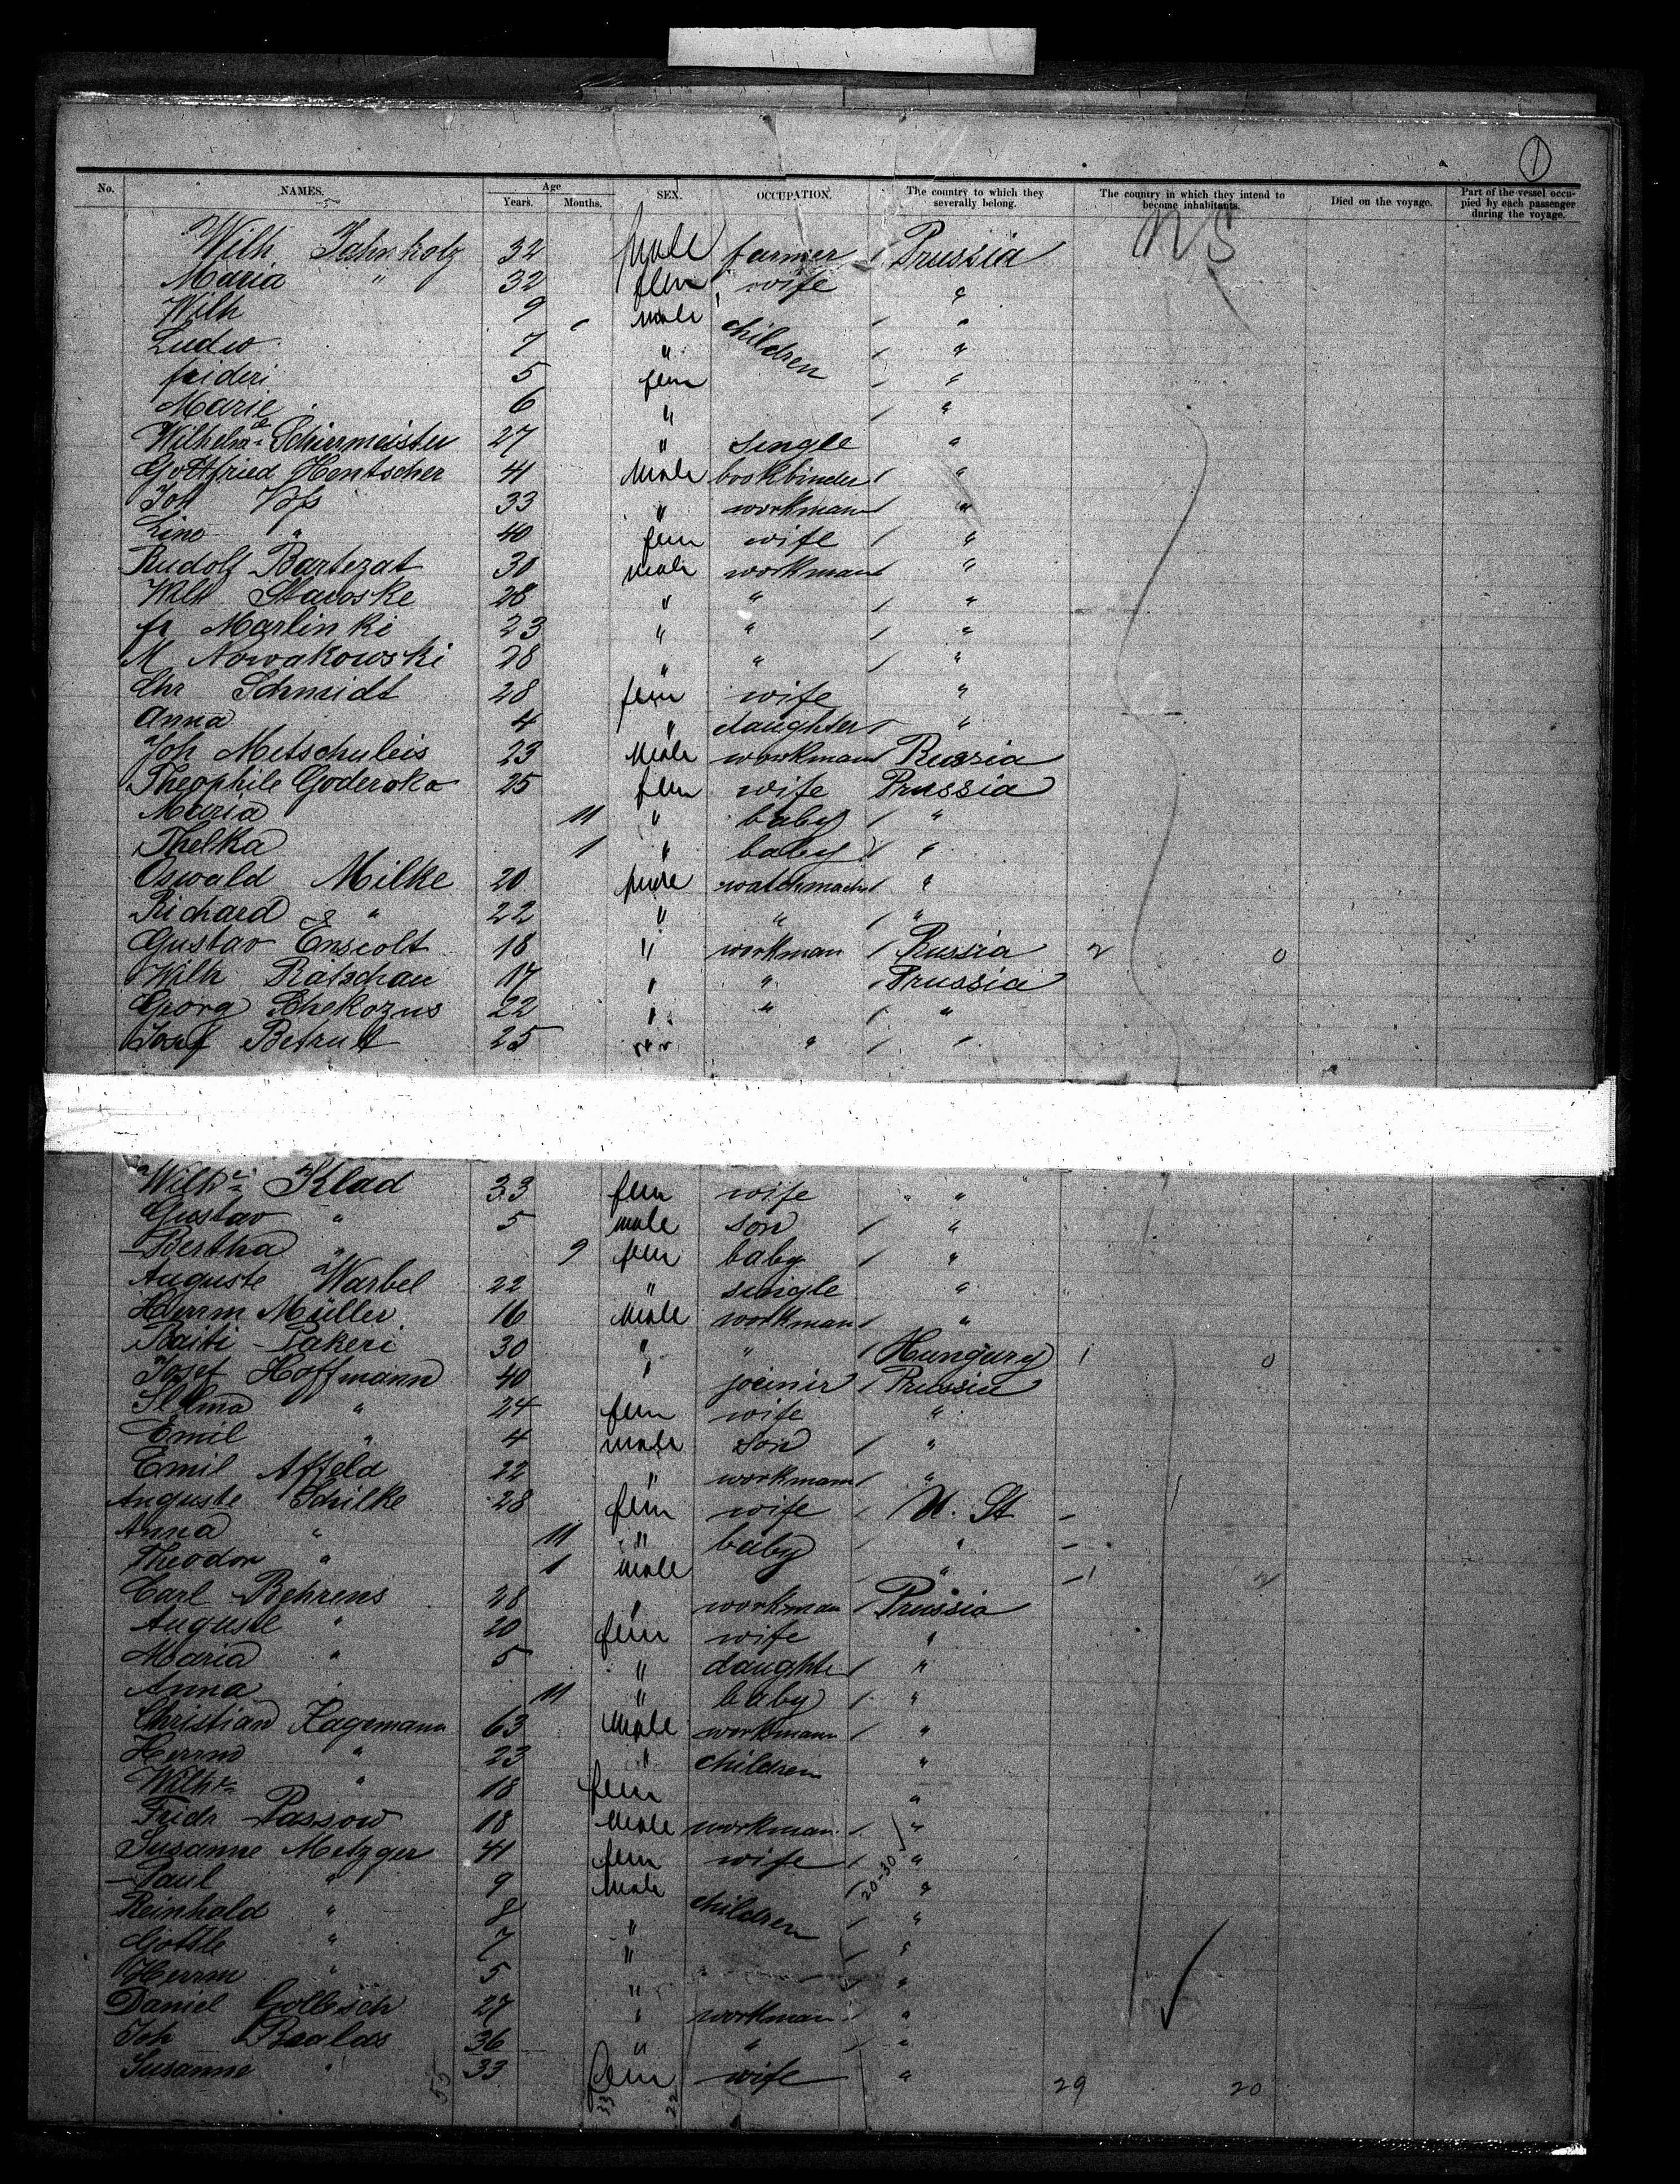 1
No. NAMES. Age Years. Months. SEX. OCCUPATION. The country to which they severally belong. The country in which they intend to become inhabitants. Died on the voyage. Part of the vessel occupied by each passenger during the voyage.
Wilh Jahnholz 32 Male farmer / Prussia US
Maria " 32 fem wife "
Wilh 9 male children / "
Ludw 7 " / "
frideri 5 fem / "
Marie 6 " / "
Wilhelmne Schiermeister 27 " single "
Gottfried Hentscher 41 Male bookbinder / "
Joh Voss 33 " workman / "
Line " 40 fem wife / "
Rudolf Bartezat 30 male workman / "
Wilh Stawoske 28 " " / "
fr Marlinki 23 " " / "
M Nowakowski 28 " " / "
Chr Schmidt 28 fem wife "
Anna 4 " daughter / "
Joh Metschuleis 23 Male workman / Russia
Theophile Goderoka 25 fem wife Prussia
Maria 11 " baby / "
Thelka 1 " baby / "
Oswald Milke 20 male watchmach / "
Richard " 22 " " / "
Gustav Enscolt 18 " workman / Russia 2 0
Wilh Ratschau 17 " " / Prussia
Georg Schekozus 22 " " / "
Josef Betrult 25 " " / "
Wilhe Klad 33 fem wife " "
Gustav " 5 male son / "
Bertha " 9 fem baby / "
Auguste Warbel 22 " single "
Herrm Müller 16 Male workman / "
Baiti Pakeri 30 " " / Hungury 1 0
Josef Hoffmann 40 " joinir / Prussia
Selma " 24 fem wife "
Emil " 4 male son / "
Emil Affeld 22 " workman / "
Auguste Schilke 28 fem wife / U. St -
Anna " 11 " baby / " -
Theodor " 1 male / " - 1 2
Carl Behrens 28 " workman / Prussia
Auguste " 20 fem wife "
Maria " 5 " daughte / "
Anna 11 " baby / "
Christian Hagemann 63 Male workman / "
Herrm " 23 " children "
Wilhe " 18 fem "
Fridr Passow 18 Male workman / "
Susanne Metzger 41 fem wife / 20-30 "
Paul " 9 Male children / "
Reinhold " 8 " / "
Gottle " 7 " / "
Herrm " 5 " / "
Daniel Gollesch 27 " workman / "
Joh Baalas 36 " " / "
Susanne " 33 fem wife " 29 20
55 33 22